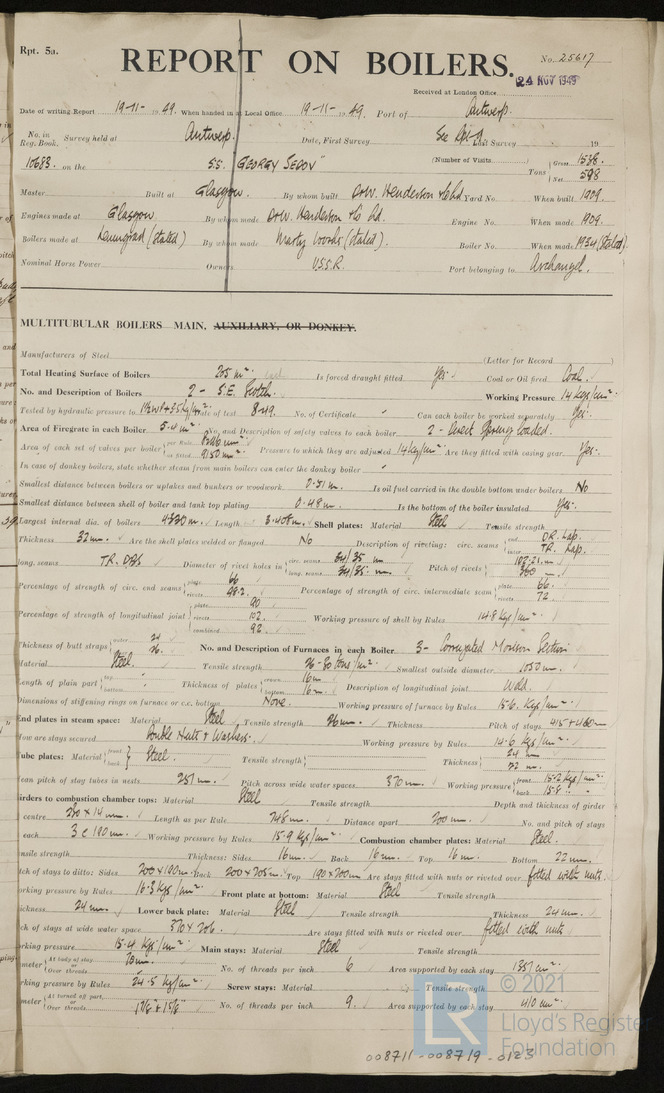 Rpt. 5a.
REPORT ON BOILERS.
No. 25617
24 NOV 1949
Received at London Office
Date of writing Report 19-11-1949. When handed in at Local Office 19-11-1949. Port of Antwerp.
No. in Reg. Book. Survey held at Antwerp. Date, First Survey See Rpt 9 Last Survey 19
10683. on the S.S. "GEORGY SEDOV" (Number of Visits Tons Gross 1538. Net 598
Master Built at Glasgow. By whom built D&W. Henderson & Co Ld. Yard No. When built 1909.
Engines made at Glasgow By whom made D&W. Henderson & Co Ld. Engine No. When made 1909.
Boilers made at Leningrad (stated) By whom made Marty Works (stated). Boiler No. When made 1934 (stated).
Nominal Horse Power Owners U.S.S.R. Port belonging to Archangel.
MULTITUBULAR BOILERS MAIN, AUXILIARY, OR DONKEY.
Manufacturers of Steel (Letter for Record )
Total Heating Surface of Boilers 205 m². Is forced draught fitted Yes. Coal or Oil fired Coal.
No. and Description of Boilers 2 - S.E. Scotch. Working Pressure 14 kgs/cm²
Tested by hydraulic pressure to Date of test 8-49. No. of Certificate " Can each boiler be worked separately Yes.
Area of Firegrate in each Boiler 5.4 m² No. and Description of safety valves to each boiler 2 - Direct Spring loaded.
Area of each set of valves per boiler per Rule as fitted 9150 mm² Pressure to which they are adjusted 14 kg/cm² Are they fitted with easing gear Yes.
In case of donkey boilers, state whether steam from main boilers can enter the donkey boiler "
Smallest distance between boilers or uptakes and bunkers or woodwork 0.51 m. Is oil fuel carried in the double bottom under boilers No
Smallest distance between shell of boiler and tank top plating 0.48 m. Is the bottom of the boiler insulated Yes.
Largest internal dia. of boilers Length 3.405 m. Shell plates: Material Steel Tensile strength
Thickness 32 mm. Are the shell plates welded or flanged No Description of riveting: circ. seams end DR. Lap. inter TR. Lap.
long. seams TR. DBS Diameter of rivet holes in circ. seams 34/35 mm long. seams 34/35 mm. Pitch of rivets
Percentage of strength of circ. end seams plate 66 rivets Percentage of strength of circ. intermediate seam plate 66. rivets 72
Percentage of strength of longitudinal joint plate 90 rivets 102 combined 92. Working pressure of shell by Rules 14.8 kgs/cm²
Thickness of butt straps outer 24 inner 26. No. and Description of Furnaces in each Boiler 3 - Corrugated Morison Section
Material Steel. Tensile strength 26-30 tons/in². Smallest outside diameter 1050 mm.
Length of plain part top " bottom " Thickness of plates crown 16 m bottom 16 m. Description of longitudinal joint Weld.
Dimensions of stiffening rings on furnace or c.c. bottom None. Working pressure of furnace by Rules 15.6. kgs/cm²
End plates in steam space: Material Steel Tensile strength 26 mm. Thickness Pitch of stays 415 x 460 mm
How are stays secured Double Nuts & Washers. Working pressure by Rules 14.6 kgs/cm²
Tube plates: Material front back Steel. Tensile strength Thickness 24 mm 22 mm.
Mean pitch of stay tubes in nests 251 mm. Pitch across wide water spaces 370 mm. Working pressure front 15.2 kgs/cm² back 15.8 "
Girders to combustion chamber tops: Material Steel Tensile strength Depth and thickness of girder
centre 230 x 14 mm. Length as per Rule 748 mm. Distance apart 200 mm. No. and pitch of stays
each 3 @ 190 mm. Working pressure by Rules 15.9 kgs/cm² Combustion chamber plates: Material Steel.
Tensile strength Thickness: Sides 16 mm. Back 16 mm. Top 16 m. Bottom 22 mm.
Pitch of stays to ditto: Sides 200 x 190 m. Back 200 x 205 m. Top 190 x 200 m. Are stays fitted with nuts or riveted over fitted with nuts.
Working pressure by Rules 16.3 kgs/cm² Front plate at bottom: Material Steel Tensile strength
Thickness 24 mm. Lower back plate: Material Steel Tensile strength Thickness 24 mm.
Pitch of stays at wide water space 370 x 206. Are stays fitted with nuts or riveted over fitted with nuts
Working pressure 15.4 kgs/cm² Main stays: Material Steel Tensile strength
Diameter At body of stay or Over threads 78 mm. No. of threads per inch 6 Area supported by each stay 1851 cm²
Working pressure by Rules 24.5 kgs/cm² Screw stays: Material Tensile strength
Diameter At turned off part, or Over threads 1 7/8" & 1 5/8" No. of threads per inch 9. Area supported by each stay 410 cm²
© 2021
LR
Lloyd's Register
Foundation
008711-008719-0123